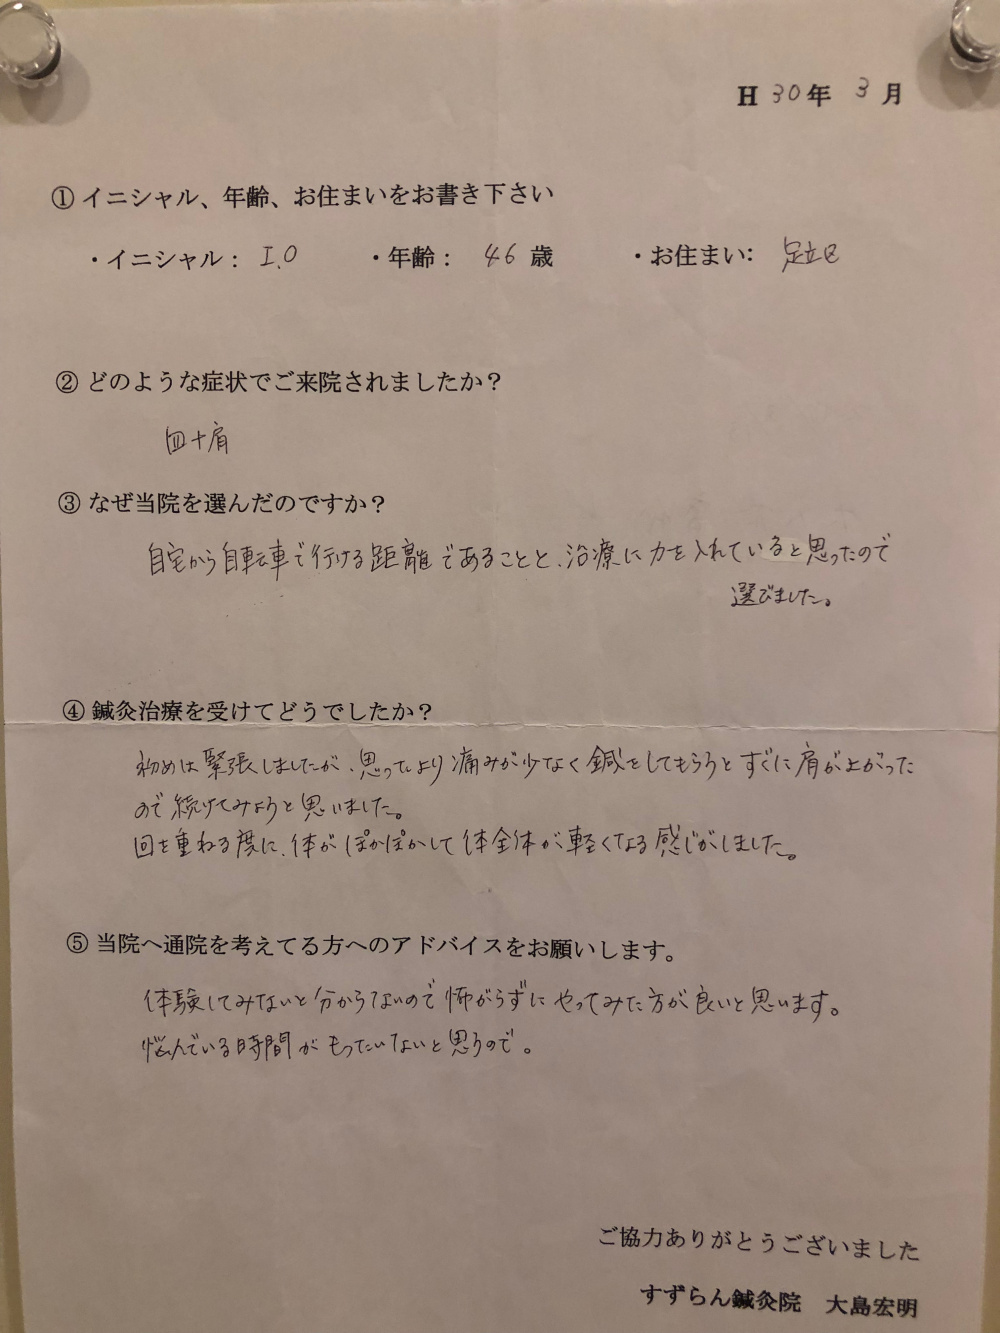 H 30年 3月
① イニシャル、年齢、お住まいをお書き下さい
・イニシャル： I.O ・年齢： 46 歳 ・お住まい： 足立区
② どのような症状でご来院されましたか？
四十肩
③ なぜ当院を選んだのですか？
自宅から自転車で行ける距離であることと、治療に力を入れていると思ったので
選びました。
④ 鍼灸治療を受けてどうでしたか？
初めは緊張しましたが、思ったより痛みが少なく鍼をしてもらうとすぐに肩が上がった
ので続けてみようと思いました。
回を重ねる度に、体がぽかぽかして体全体が軽くなる感じがしました。
⑤ 当院へ通院を考えてる方へのアドバイスをお願いします。
体験してみないと分からないので怖がらずにやってみた方が良いと思います。
悩んでいる時間がもったいないと思うので。
ご協力ありがとうございました
すずらん鍼灸院 大島宏明